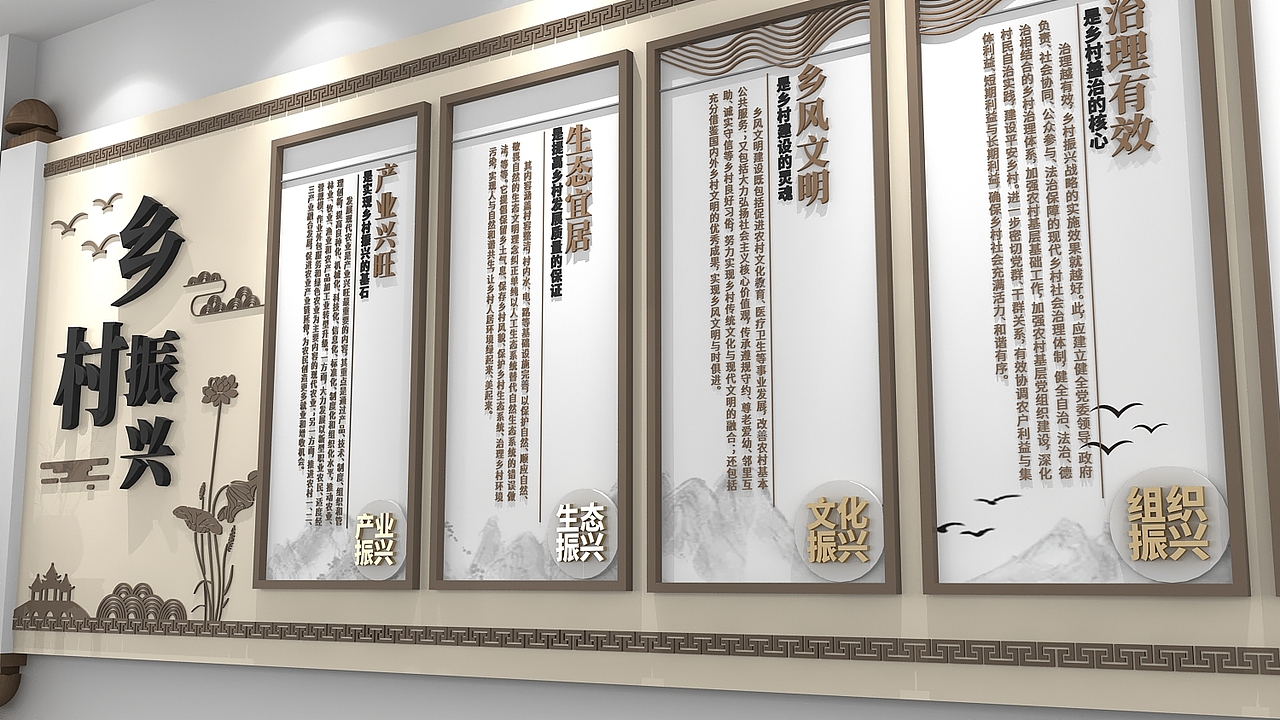 乡村振兴
产业兴旺
是实现乡村振兴的基石
产业振兴
生态宜居
是提高乡村发展质量的保证
其内容涵盖村容整洁，村内水、电、路等基础设施完善，以保护自然、顺应自然、
敬畏自然的生态文明理念纠正单纯以人工生态系统替代自然生态系统的错误做
法，等等。它提倡保留乡土气息、保存乡村风貌、保护乡村生态系统、治理乡村环境
污染，实现人与自然和谐共生，让乡村人居环境绿起来、美起来。
生态振兴
乡风文明
是乡村建设的灵魂
乡风文明建设既包括促进农村文化教育、医疗卫生等事业发展，改善农村基本
公共服务；又包括大力弘扬社会主义核心价值观，传承遵规守约、尊老爱幼、邻里互
助、诚实守信等乡村良好习俗，努力实现乡村传统文化与现代文明的融合；还包括
充分借鉴国内外乡村文明的优秀成果，实现乡风文明与时俱进。
文化振兴
治理有效
是乡村善治的核心
治理越有效，乡村振兴战略的实施效果就越好。此，应建立健全党委领导、政府
负责、社会协同、公众参与、法治保障的现代乡村社会治理体制，健全自治、法治、德
治相结合的乡村治理体系，加强农村基层基础工作，加强农村基层党组织建设，深化
村民自治实践，建设平安乡村。进一步密切党群、干群关系，有效协调农户利益与集
体利益、短期利益与长期利益，确保乡村社会充满活力、和谐有序。
组织振兴